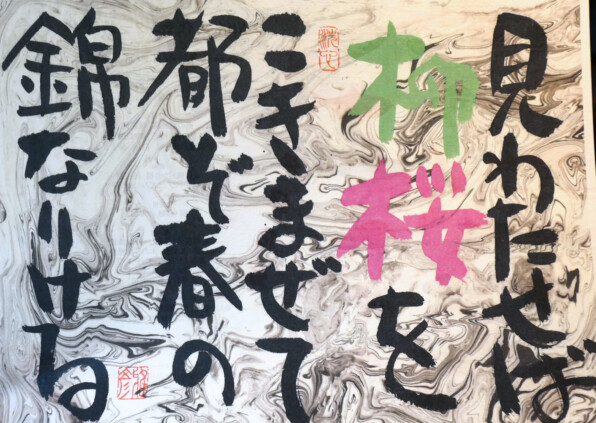 見わたせば
柳桜を
こきまぜて
都ぞ春の
錦なりける